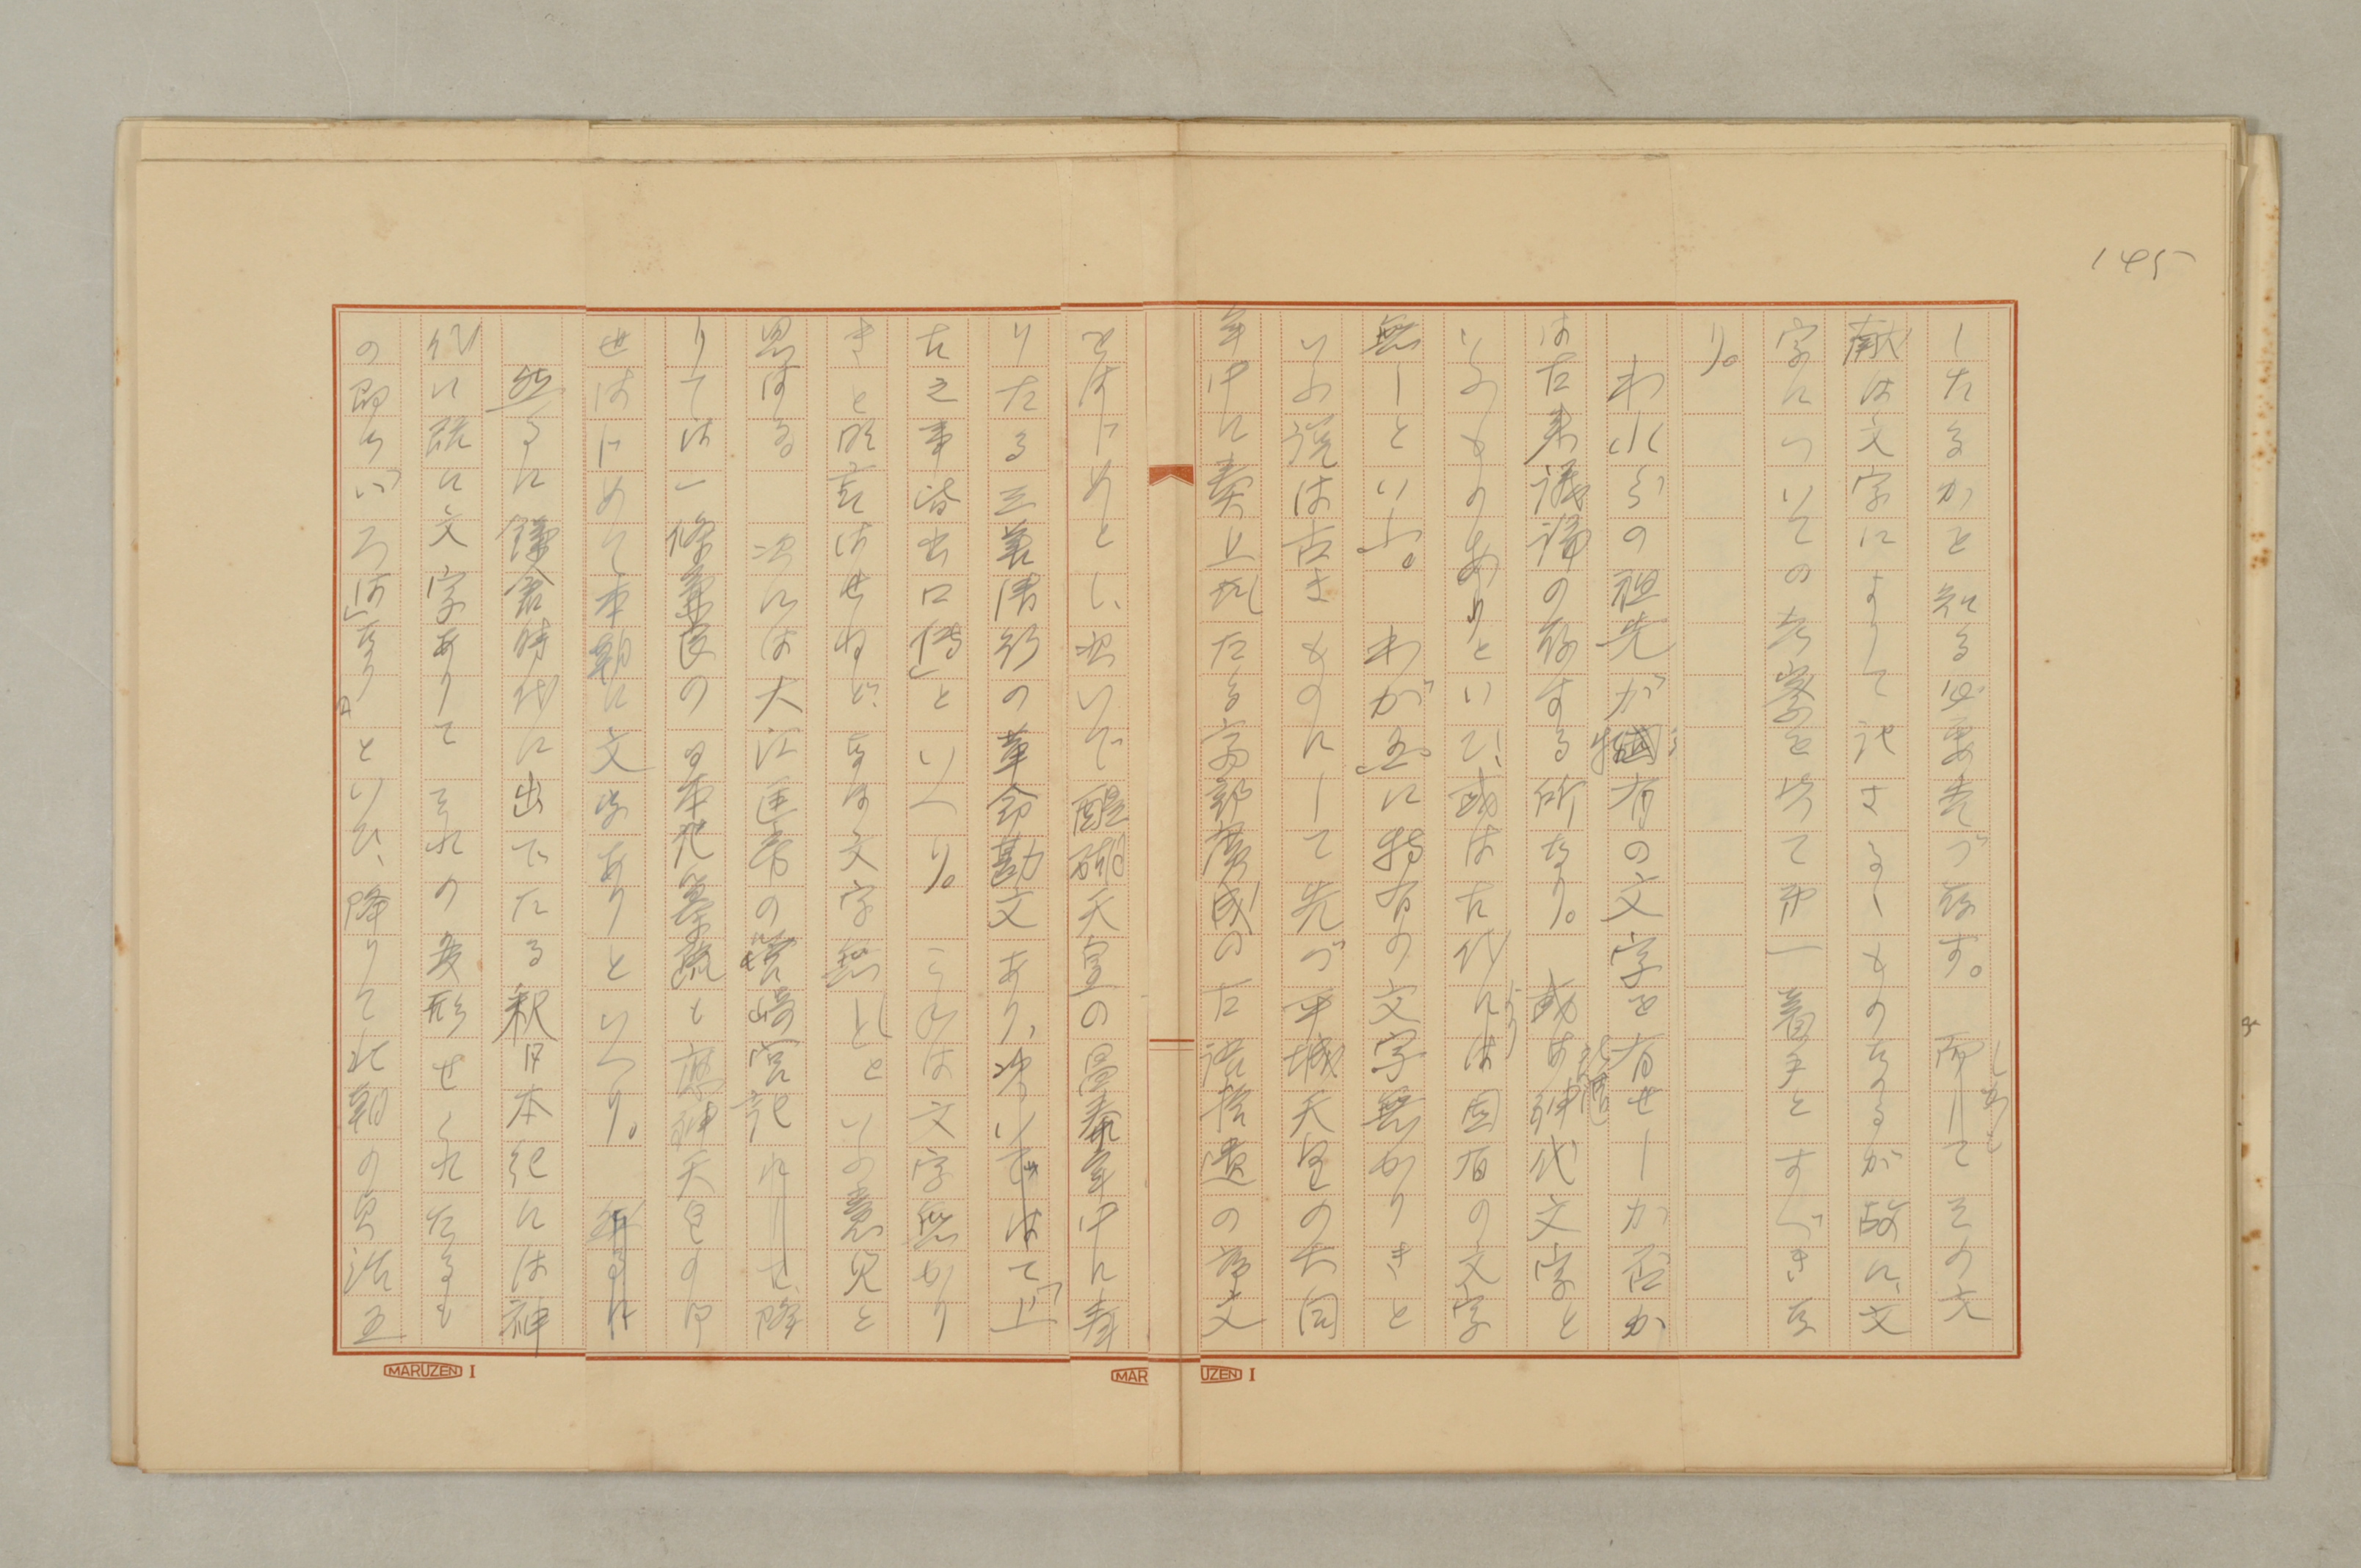 145
したるかを知る必要先づ存す。而してその文
しかも
献は文字によりて記さるゝものなるが故に、文
字についての考察を以て第一着手とすべきな
り。
われらの祖先が特有の文字を有せしか否かは
は古来議論の存する所なり。或は神代文字と
いふものありといひ、或は古代には固有の文字
より
無しといふ。わが国に特有の文字無かりきと
いふ説は古きものにして先づ平城天皇の大同
年中に奏上せられたる斎部広成の古語拾遺の序文
をはじめとし、次いで醍醐天皇の昌泰年中に奏
りたる三善清行の革命勘文あり、次いでは「上
古之事皆出口傳」といへり。これは文字無かり
きと明言はせねど、なほ文字無しといふ意見と
思はる　次には大江匡房の筥崎宮記
りては一條兼良の日本紀纂疏も応神天皇の御
世はじめて本朝に文字ありといへり。然るに
然るに鎌倉時代に出でたる釈日本紀には神
代に既に文字ありてそれの変形せられたるも
の即ち「いろは」なりといひ、降りて北朝の
MARUZEN I
MARUZEN I